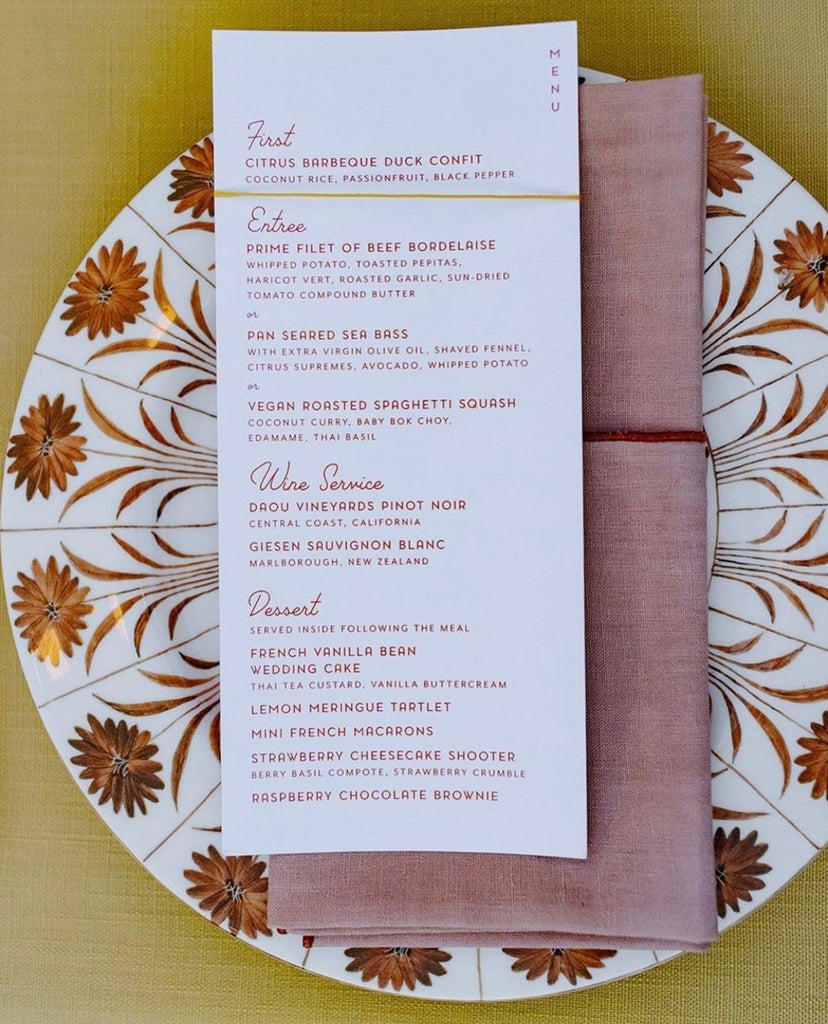 MENU
First
CITRUS BARBEQUE DUCK CONFIT
COCONUT RICE, PASSIONFRUIT, BLACK PEPPER
Entree
PRIME FILET OF BEEF BORDELAISE
WHIPPED POTATO, TOASTED PEPITAS,
HARICOT VERT, ROASTED GARLIC, SUN-DRIED
TOMATO COMPOUND BUTTER
or
PAN SEARED SEA BASS
WITH EXTRA VIRGIN OLIVE OIL, SHAVED FENNEL,
CITRUS SUPREMES, AVOCADO, WHIPPED POTATO
or
VEGAN ROASTED SPAGHETTI SQUASH
COCONUT CURRY, BABY BOK CHOY,
EDAMAME, THAI BASIL
Wine Service
DAOU VINEYARDS PINOT NOIR
CENTRAL COAST, CALIFORNIA
GIESEN SAUVIGNON BLANC
MARLBOROUGH, NEW ZEALAND
Dessert
SERVED INSIDE FOLLOWING THE MEAL
FRENCH VANILLA BEAN
WEDDING CAKE
THAI TEA CUSTARD, VANILLA BUTTERCREAM
LEMON MERINGUE TARTLET
MINI FRENCH MACARONS
STRAWBERRY CHEESECAKE SHOOTER
BERRY BASIL COMPOTE, STRAWBERRY CRUMBLE
RASPBERRY CHOCOLATE BROWNIE